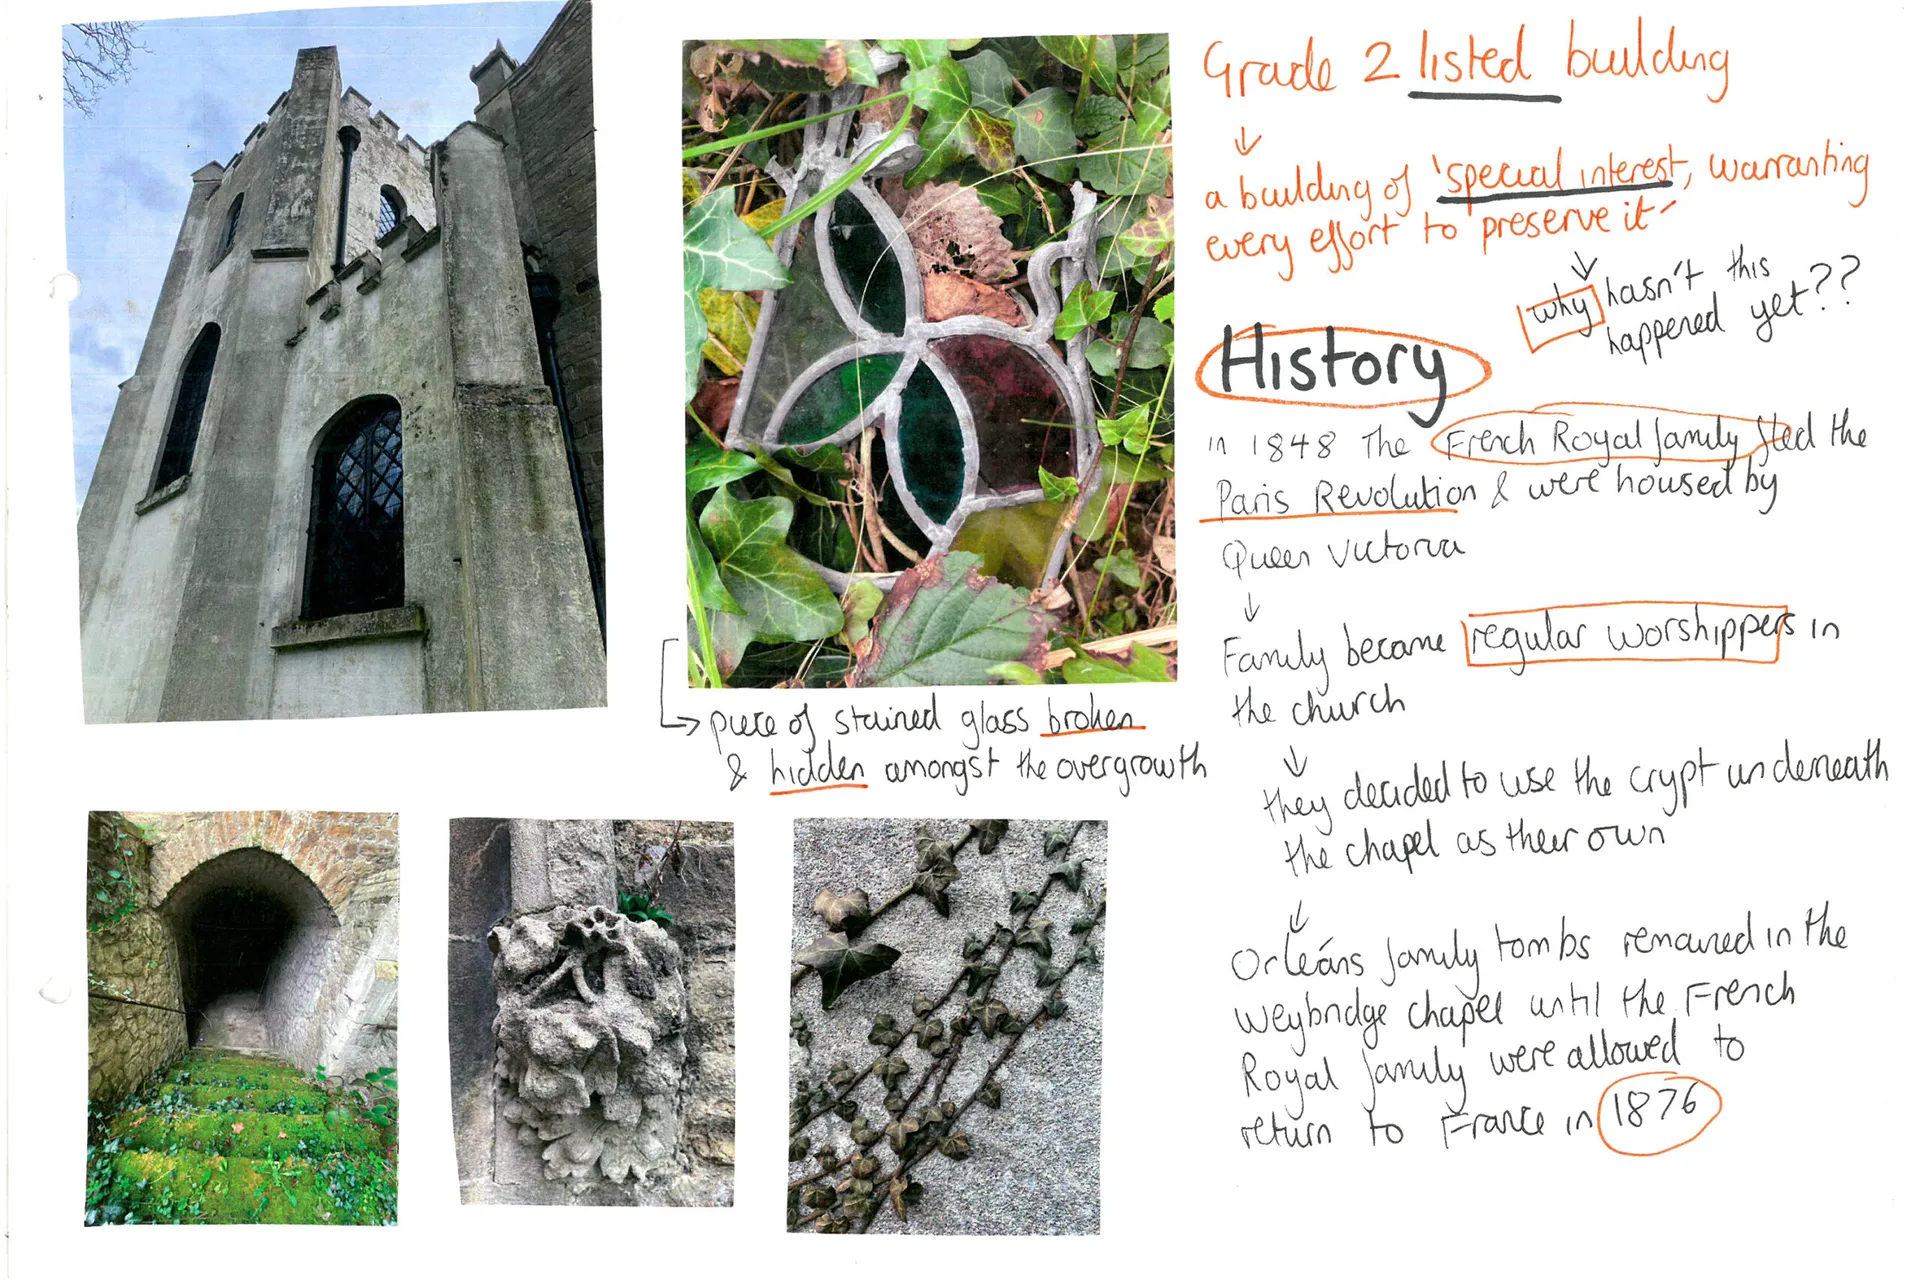 Grade 2 listed building
↓
a building of 'special interest, warranting
every effort to preserve it'
↓
why hasn't this
happened yet??
History
in 1848 The French Royal family fled the
Paris Revolution & were housed by
Queen Victoria
↓
Family became regular worshippers in
the church
↓
they decided to use the crypt underneath
the chapel as their own
↓
Orléans family tombs remained in the
Weybridge chapel until the French
Royal family were allowed to
return to France in 1876
piece of stained glass broken
& hidden amongst the overgrowth